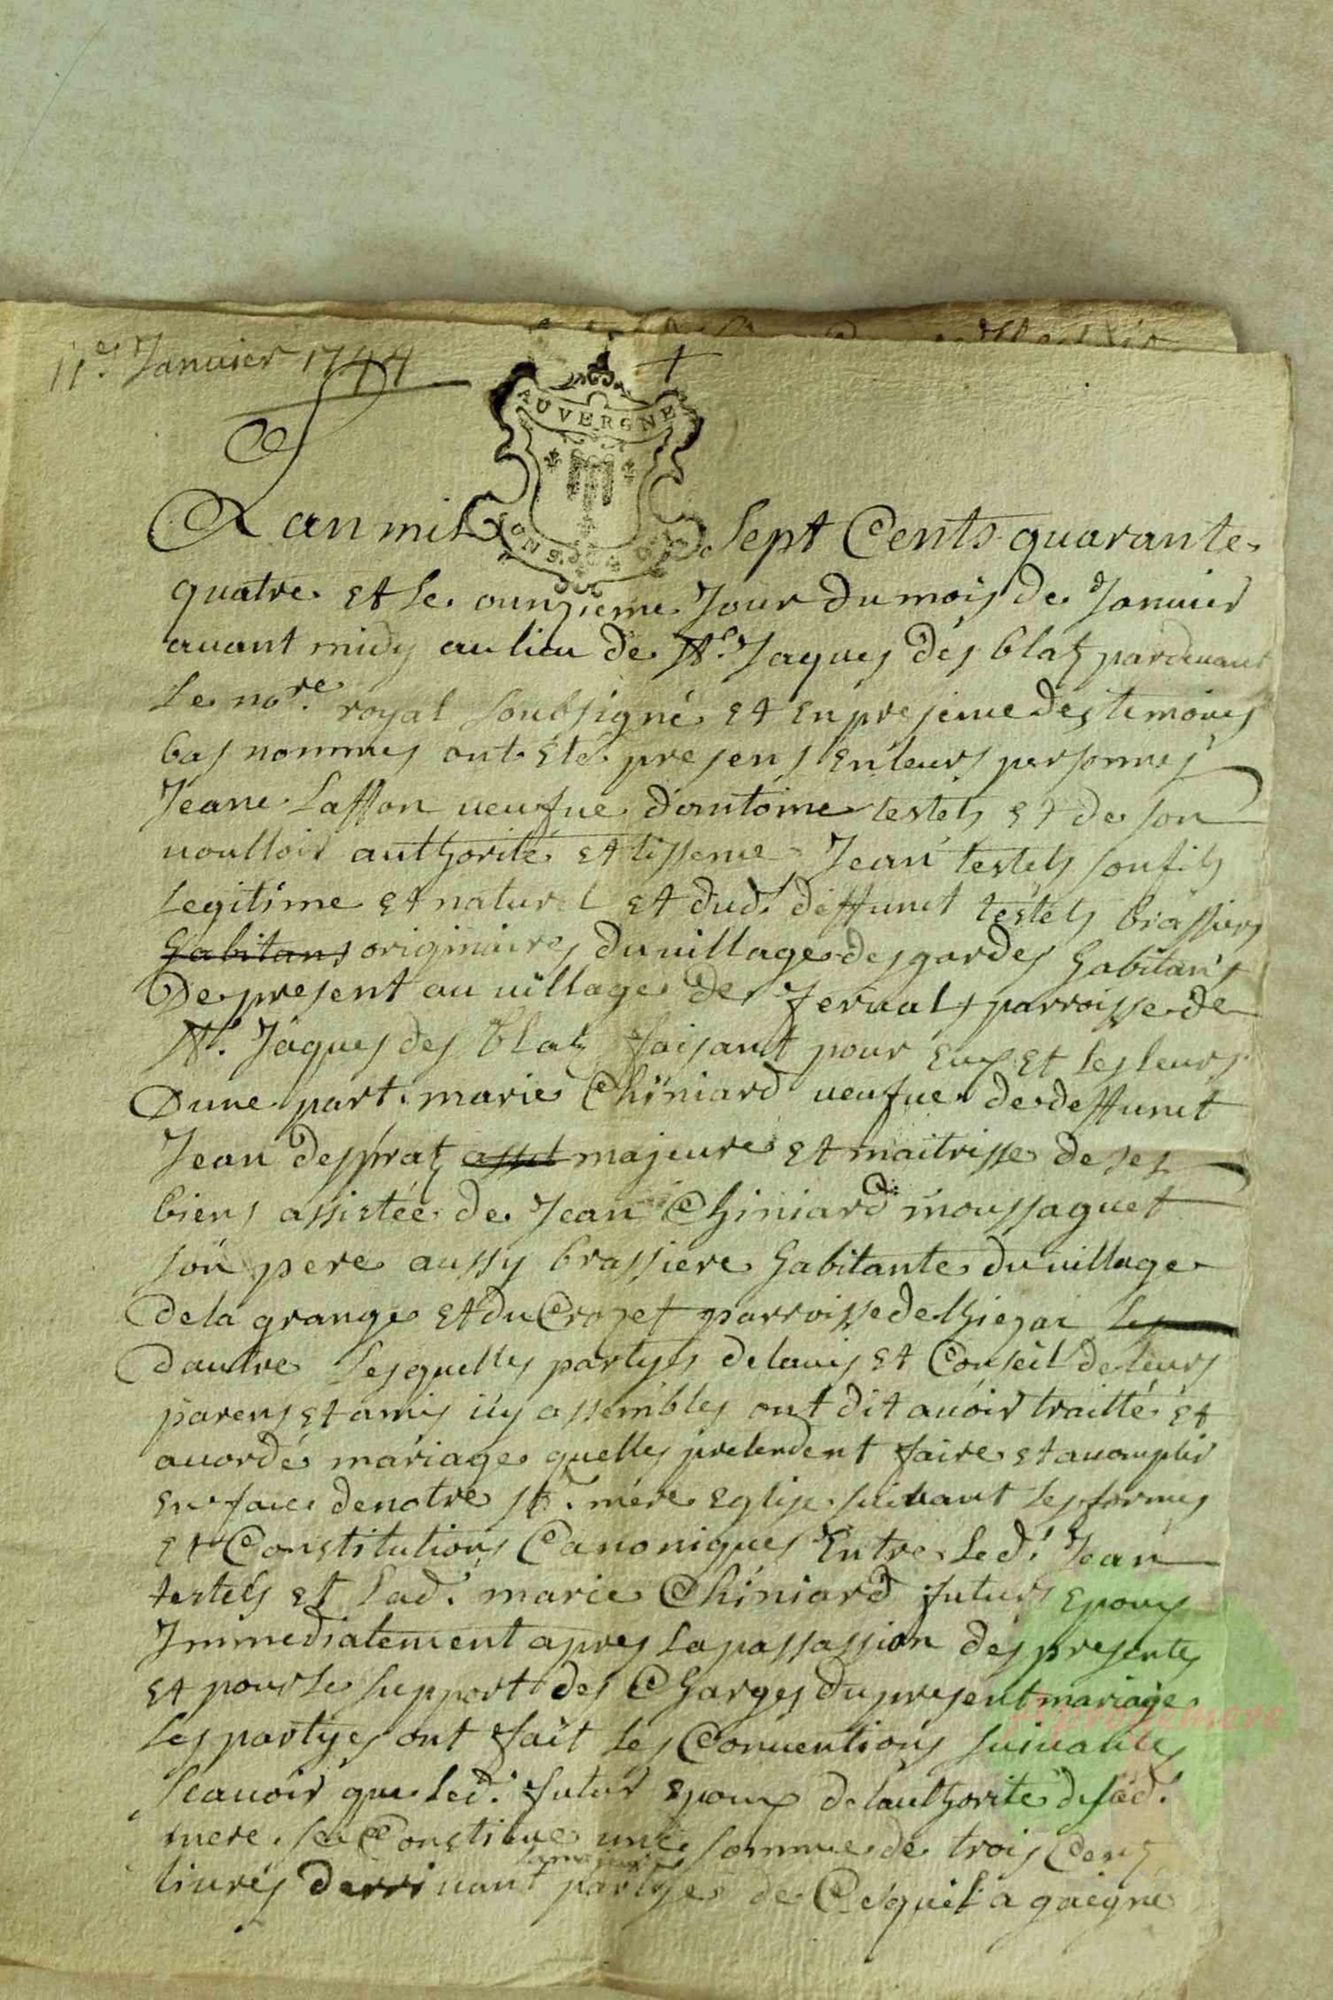 11e. Janvier 1744
AUVERGNE
L an mil Sept Cents quarante
quatre et le ounzieme Jour du mois de Janvier
avant midy au lieu de St. Jaques des blatz pardevant
Le nore. royal soubsigné et en presence des temoins
bas nommes ont été presens en leurs personnes
Jeane Laffon veufve d'antoine testels et de son
voulloir authorité et lissence Jean testels son fils
legitime et naturel et dud. deffunct testels brassiers
habitans originaires du village des gardes habitans
De present au village de fervals parroisse de
St. Jaques des blatz faisant pour Eux et les leurs
Dune part. marie Chiniard veufve de deffunct
Jean despratz majeure et maitresse de ses
biens assistée de Jean Chiniard moussaguet
son pere aussy brassiere habitante du village
de la grange et du Crozet parroisse de thiezac
dautre Lesquelles partyes de lavis et Conseil de leurs
parens et amis icy assembles ont dit avoir traitté et
acordé mariage quelles pretendent faire et acomplir
en face de notre Ste. mere Eglise suivant Les formes
et Constitutions Canoniques Entre Led. Jean
testels et Lad. marie Chiniard futurs Epoux
Immediatement apres la passassion des presentes
et pour le support des Charges du present mariage
Les partyes ont fait les Conventions suivantes
scavoir que Led. futur Epoux de lauthorité de sad.
mere se Constitue une somme de trois Cens
livres partye de Ce quil a gaigné
Aprogemere